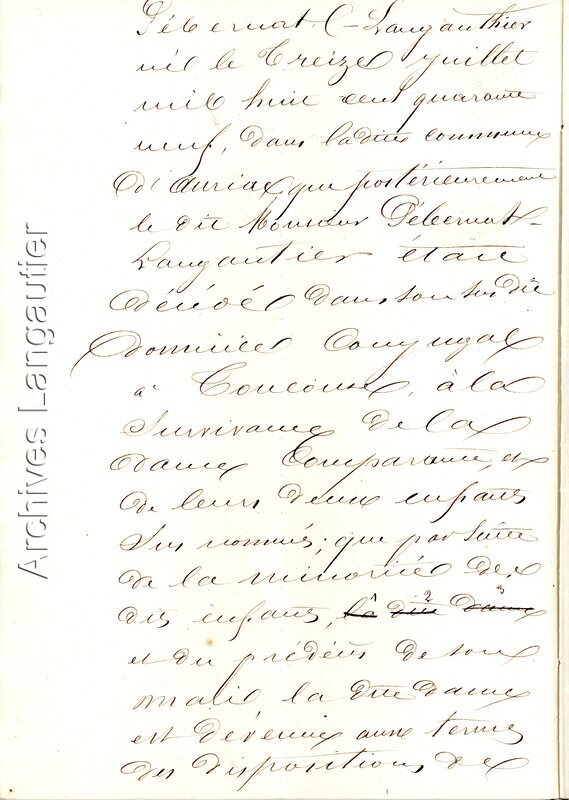 Pébernat-Langauthier
né le treize juillet
mil huit cent quarante
neuf, dans ladite commune
d'auriac que postérieurement
le dit Monsieur Pébernat-
Langautier était
décédé dans son sus dit
domicile conjugal
à Toulouse, à la
survivance de la
dame Comparante, et
de leurs deux enfants
sus nommés; que par suite
de la minorité des
dits enfants, la 1 dite 2 dame 3
et du prédécès de son
mari, la dite dame
est dévenue aux termes
des dispositions de
Archives Langautier